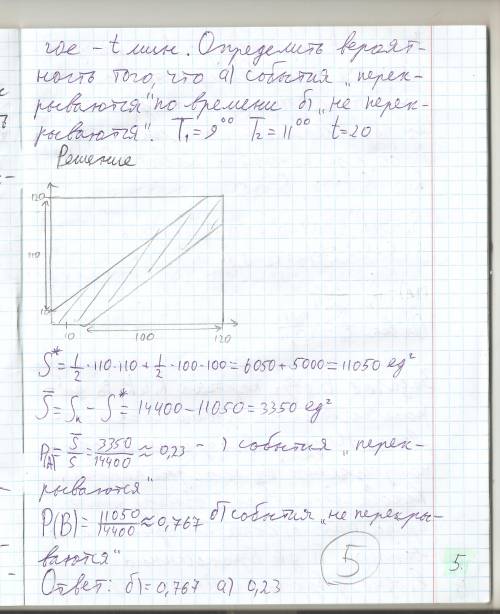 гое - t мин. Определить вероят-
ность того, что а) события „перек-
рываются" по времени б) „не перек-
рываются". T₁=9⁰⁰ T₂=11⁰⁰ t=20
Решение
120
110
10
10 100 120
S*=1/2·110·110+1/2·100·100=6050+5000=11050 ед²
S̅=Sₙ-S*=14400-11050=3350 ед²
P(A)=S̅/S=3350/14400≈0,23 - ) события „перек-
рываются"
P(B)=11050/14400≈0,767 б) события „не перекры-
ваются"
Ответ: б)=0,767 а) 0,23
5
5.